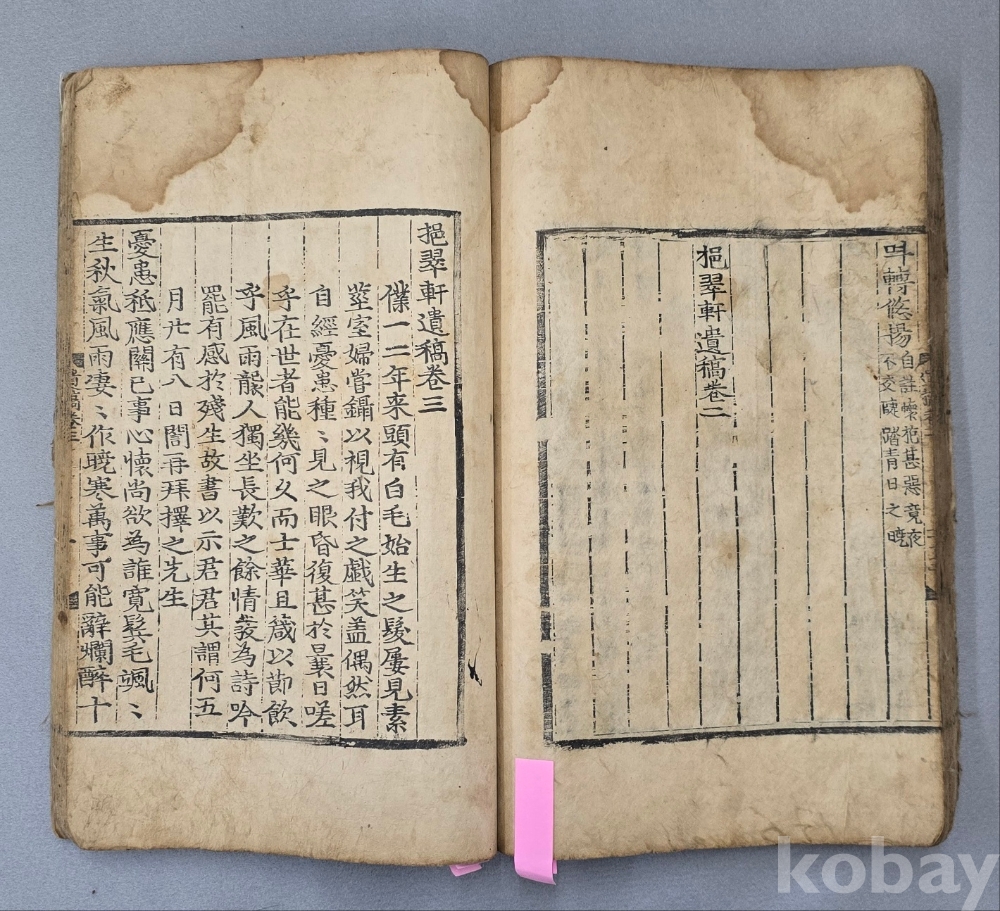 叫轉悠揚自註懷抱甚惡竟夜
不交睫踏青日之曉
挹翠軒遺稿卷二
挹翠軒遺稿卷三
僕一二年来頭有白毛始生之髮屢見素
莖室婦嘗鑷以視我付之戯笑盖偶然耳
自經憂患種〻見之眼昏復甚於曩日嗟
乎在世者能幾何久而士華且箴以節飲
乎風雨襲人獨坐長歎之餘情發為詩吟
罷有感於殘生故書以示君君其謂何五
月廿有八日誾再拜擇之先生
憂患秪應關已事心懷尚欲為誰寬鬂毛颯〻
生秋氣風雨凄〻作曉寒萬事可能辭爛醉十
kobay